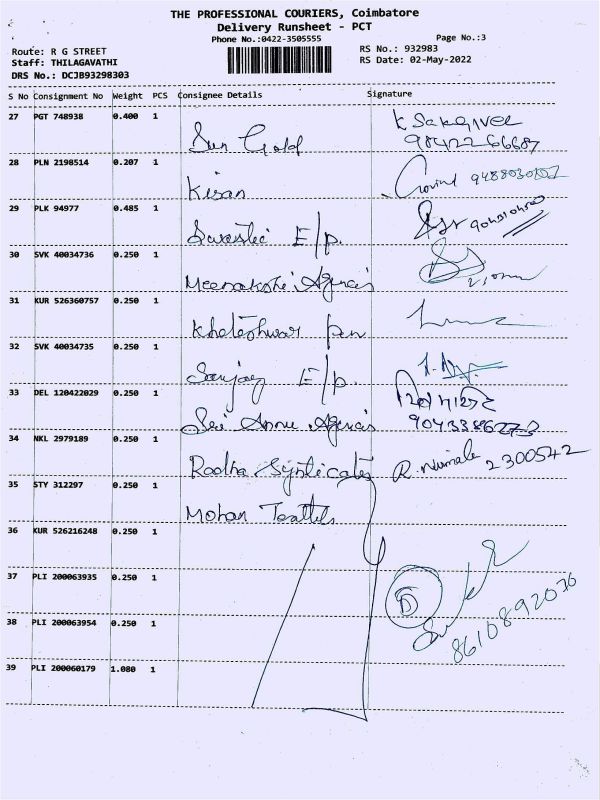 THE PROFESSIONAL COURIERS, Coimbatore
Delivery Runsheet - PCT
Phone No.:0422-3505555
Page No.:3
Route: R G STREET
RS No.: 932983
Staff: THILAGAVATHI
RS Date: 02-May-2022
DRS No.: DCJB93298303
S No Consignment No Weight PCS Consignee Details Signature
27 PGT 748938 0.400 1
Sun Gold
28 PLN 2198514 0.207 1
Kisan Govind
29 PLK 94977 0.485 1
E/p.
30 SVK 40034736 0.250 1
Meenakshi Agencis
31 KUR 526360757 0.250 1
Kheteshwar pen
32 SVK 40034735 0.250 1
Sanjay E/p.
33 DEL 120422029 0.250 1
Sri Annu Agencis
34 NKL 2979189 0.250 1
Radha Syndicates R. Nirmala 2300542
35 STY 312297 0.250 1
Mohan
36 KUR 526216248 0.250 1
37 PLI 200063935 0.250 1
38 PLI 200063954 0.250 1
8610892036
39 PLI 200060179 1.080 1